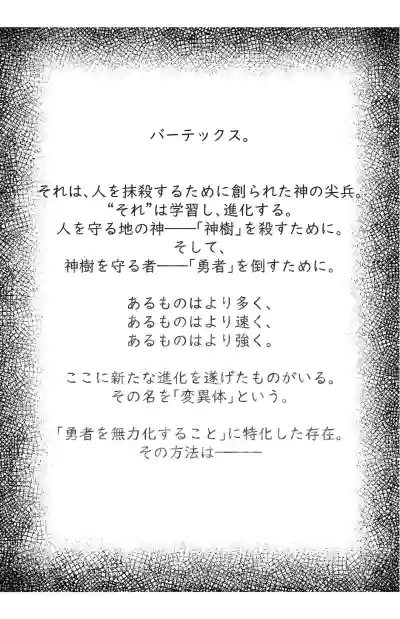 バーテックス。
それは、人を抹殺するために創られた神の尖兵。
“それ”は学習し、進化する。
人を守る地の神──「神樹」を殺すために。
そして、
神樹を守る者──「勇者」を倒すために。
あるものはより多く、
あるものはより速く、
あるものはより強く。
ここに新たな進化を遂げたものがいる。
その名を「変異体」という。
「勇者を無力化すること」に特化した存在。
その方法は────